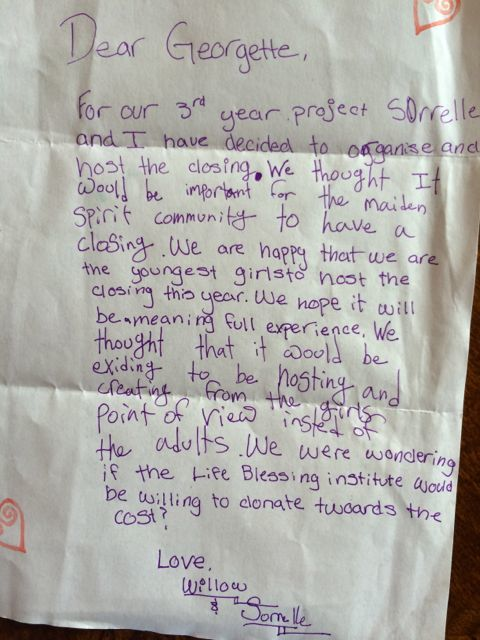 Dear Georgette,
For our 3rd year project SOrrelle
and I have decided to organise and
host the closing. We thought It
would be important for the maiden
Spirit community to have a
closing. We are happy that we are
the youngest girls to host the
closing this year. We hope it will
be a meaning full experience. We
thought that it would be
exiding to be hosting and
creating from the girls
point of view insted of
the adults. We were wondering
if the Life Blessing institute would
be willing to donate twoards the
cost?
Love,
Willow
&
Sorrelle